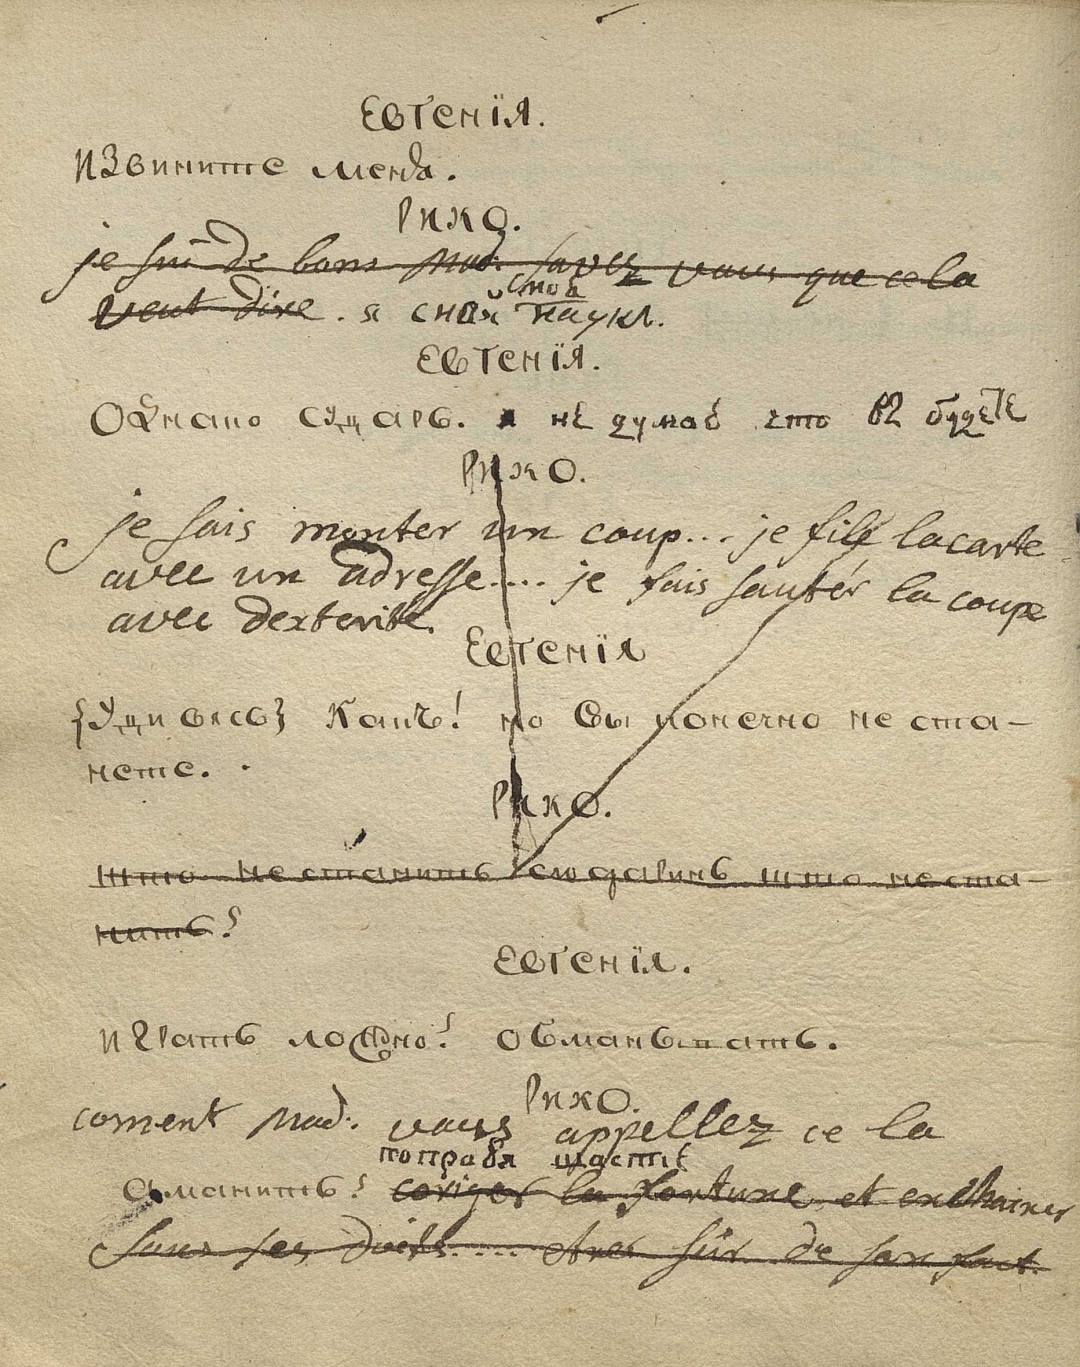 Евгенïя.
Извините меня.
Рико.
je sui de bons Mad: savez vous que ce la
veut dire. я снай
мой
наукл.
Евгенïя.
Однако сударь. я не думаю что вы будете
Рико.
je sais monter un coup... je file la carte
avec un adresse.... je fais sauter la coupe
avec dexterité.
Евгенïя
{Удивясь} Какъ! но вы конечно не ста-
нете.
Рико.
што не станить сюдаринь што не ста-
нить?
Евгенïя.
играть ложно? обманывать.
Рико.
coment Mad: vous appellez ce la
поправя щастiе
аманить? coriger la fortune, et enchainer
sous ses doits.... etres sûr de son fait.